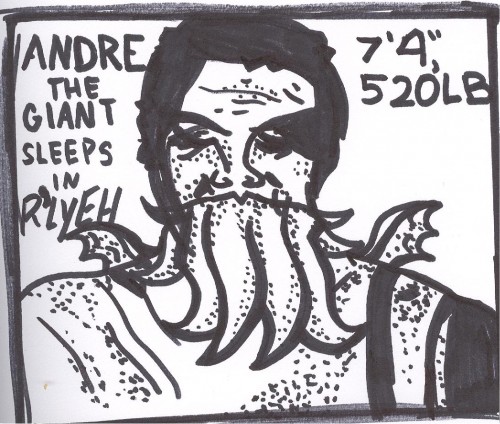 ANDRE
THE
GIANT
SLEEPS
IN
R'LYEH
7'4",
520LB